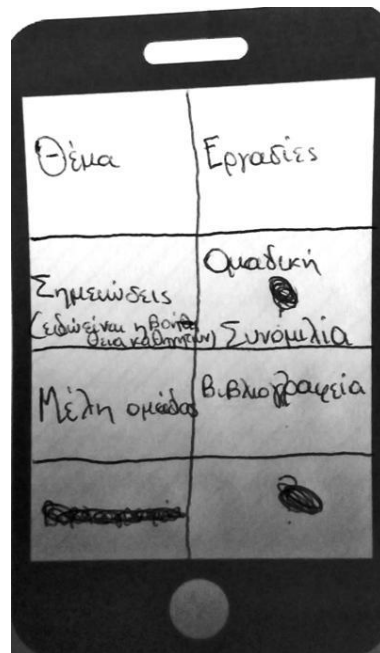 Θέμα
Εργασίες
Σημειώσεις
(εδώ είναι η βοήθ
εια καθηγητών)
Ομαδική
Συνομιλία
Μέλη ομάδας
Βιβλιογραφεία